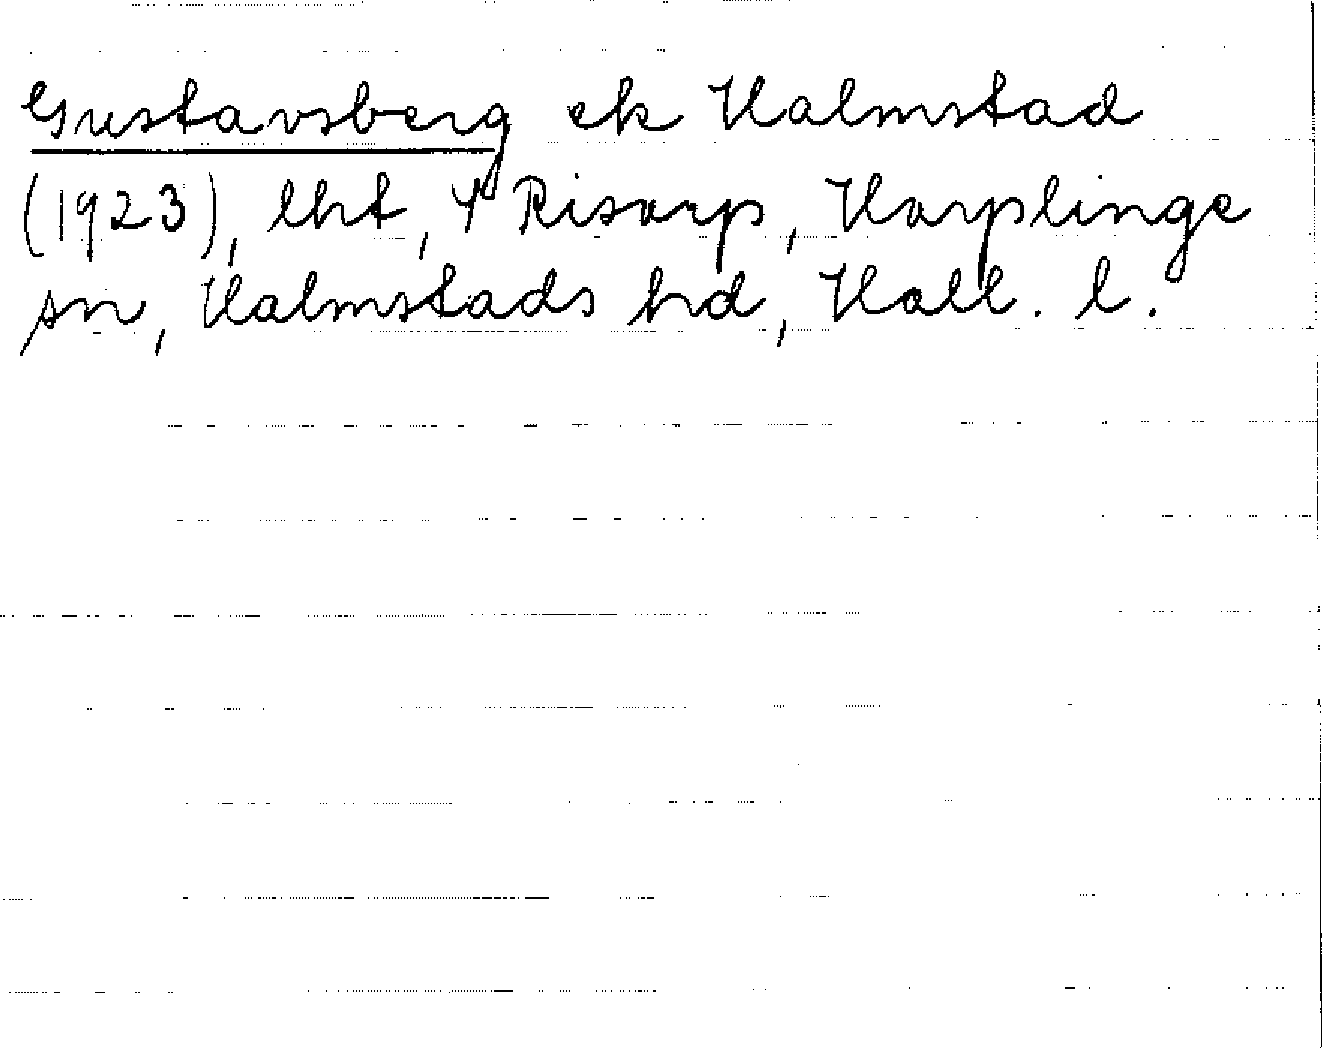 Gustavsberg ek Halmstad
(1923), lht, Y Risarp, Harplinge
sn, Halmstads hd, Hall. l.